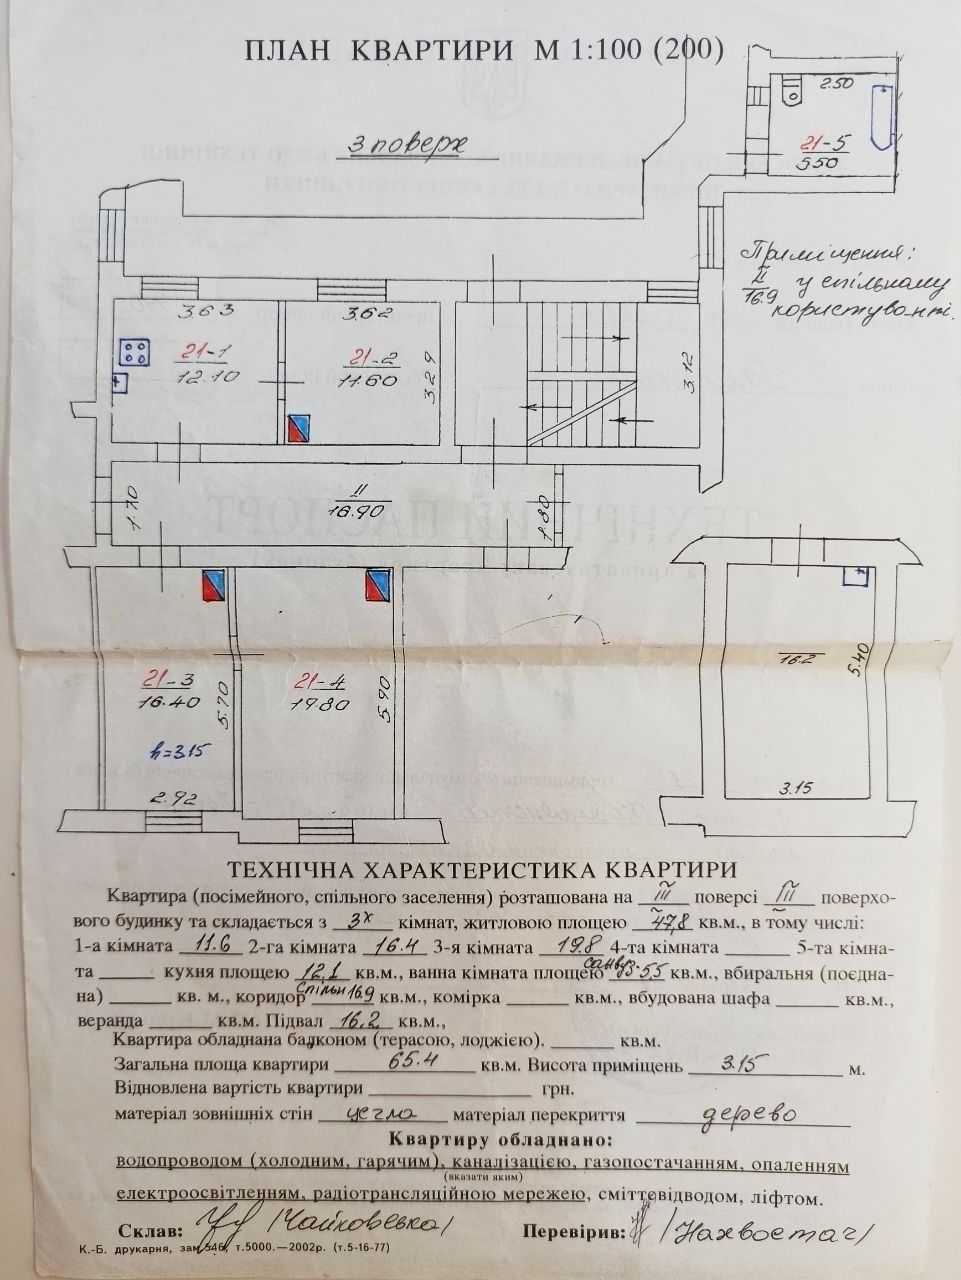 ПЛАН КВАРТИРИ М 1:100 (200)
3 поверх
2.50
21-5
5.50
Приміщення:
II
16.9 у спільному
користуванні.
3.63
3.62
21-1
12.10
21-2
11.60
3.29
3.12
1.70
II
16.90
1.80
21-3
16.40
5.70
h=3.15
2.92
21-4
19.80
5.90
16.2
5.40
3.15
ТЕХНІЧНА ХАРАКТЕРИСТИКА КВАРТИРИ
Квартира (посімейного, спільного заселення) розташована на III поверсі III поверхо-
вого будинку та складається з 3х кімнат, житловою площею 47,8 кв.м., в тому числі:
1-а кімната 11.6 2-га кімната 16.4 3-я кімната 19.8 4-та кімната 5-та кімна-
та кухня площею 12,1 кв.м., ванна кімната площею санвуз. 5.5 кв.м., вбиральня (поєдна-
на) кв. м., коридор спільн 16.9 кв.м., комірка кв.м., вбудована шафа кв.м.,
веранда кв.м. Підвал 16.2 кв.м.,
Квартира обладнана балконом (терасою, лоджією). кв.м.
Загальна площа квартири 65.4 кв.м. Висота приміщень 3.15 м.
Відновлена вартість квартири грн.
матеріал зовнішніх стін цегла матеріал перекриття дерево
Квартиру обладнано:
водопроводом (холодним, гарячим), каналізацією, газопостачанням, опаленням
(вказати яким)
електроосвітленням, радіотрансляційною мережею, сміттєвідводом, ліфтом.
Склав: /Чайковська/ Перевірив: /Нахвостач/
К.-Б. друкарня, зам 546, т.5000.—2002р. (т.5-16-77)